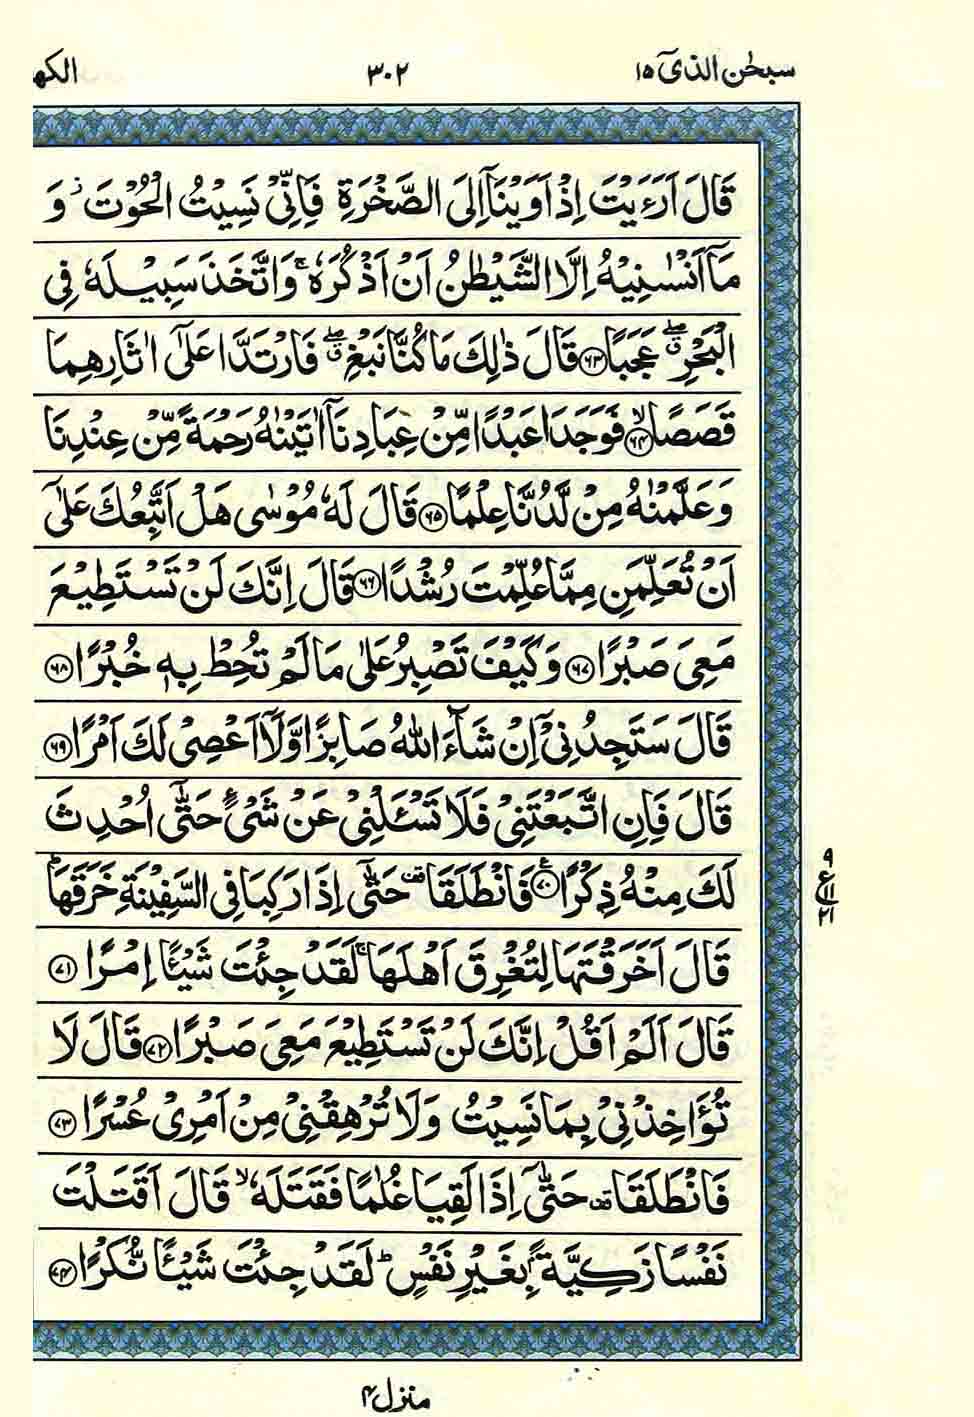 سبحٰن الذیٓ ١٥ ٣٠٢ الكه
قَالَ اَرَءَيْتَ اِذْ اَوَيْنَاۤ اِلَى الصَّخْرَةِ فَاِنِّيْ نَسِيْتُ الْحُوْتَ ؗ وَ
مَاۤ اَنْسٰىنِيْهُ اِلَّا الشَّيْطٰنُ اَنْ اَذْكُرَهٗ ۚ وَاتَّخَذَ سَبِيْلَهٗ فِي
الْبَحْرِ ۖۗ عَجَبًا ﴿٦٣﴾ قَالَ ذٰلِكَ مَا كُنَّا نَبْغِ ۖۗ فَارْتَدَّا عَلٰۤى اٰثَارِهِمَا
قَصَصًا ۙ﴿٦٤﴾ فَوَجَدَا عَبْدًا مِّنْ عِبَادِنَاۤ اٰتَيْنٰهُ رَحْمَةً مِّنْ عِنْدِنَا
وَعَلَّمْنٰهُ مِنْ لَّدُنَّا عِلْمًا ﴿٦٥﴾ قَالَ لَهٗ مُوْسٰى هَلْ اَتَّبِعُكَ عَلٰۤى
اَنْ تُعَلِّمَنِ مِمَّا عُلِّمْتَ رُشْدًا ﴿٦٦﴾ قَالَ اِنَّكَ لَنْ تَسْتَطِيْعَ
مَعِيَ صَبْرًا ﴿٦٧﴾ وَكَيْفَ تَصْبِرُ عَلٰى مَا لَمْ تُحِطْ بِهٖ خُبْرًا ﴿٦٨﴾
قَالَ سَتَجِدُنِيْۤ اِنْ شَآءَ اللّٰهُ صَابِرًا وَّلَاۤ اَعْصِيْ لَكَ اَمْرًا ﴿٦٩﴾
قَالَ فَاِنِ اتَّبَعْتَنِيْ فَلَا تَسْـَٔلْنِيْ عَنْ شَيْءٍ حَتّٰۤى اُحْدِثَ
لَكَ مِنْهُ ذِكْرًا ﴿٧٠﴾ۧ فَانْطَلَقَا ۥ حَتّٰۤى اِذَا رَكِبَا فِي السَّفِيْنَةِ خَرَقَهَا ؕ
قَالَ اَخَرَقْتَهَا لِتُغْرِقَ اَهْلَهَا ۚ لَقَدْ جِئْتَ شَيْـًٔا اِمْرًا ﴿٧١﴾
قَالَ اَلَمْ اَقُلْ اِنَّكَ لَنْ تَسْتَطِيْعَ مَعِيَ صَبْرًا ﴿٧٢﴾ قَالَ لَا
تُؤَاخِذْنِيْ بِمَا نَسِيْتُ وَلَا تُرْهِقْنِيْ مِنْ اَمْرِيْ عُسْرًا ﴿٧٣﴾
فَانْطَلَقَا ۥ حَتّٰۤى اِذَا لَقِيَا غُلٰمًا فَقَتَلَهٗ ۙ قَالَ اَقَتَلْتَ
نَفْسًا زَكِيَّةًۢ بِغَيْرِ نَفْسٍ ؕ لَقَدْ جِئْتَ شَيْـًٔا نُّكْرًا ﴿٧٤﴾
٩
ع ١١
٢١
منزل ٤